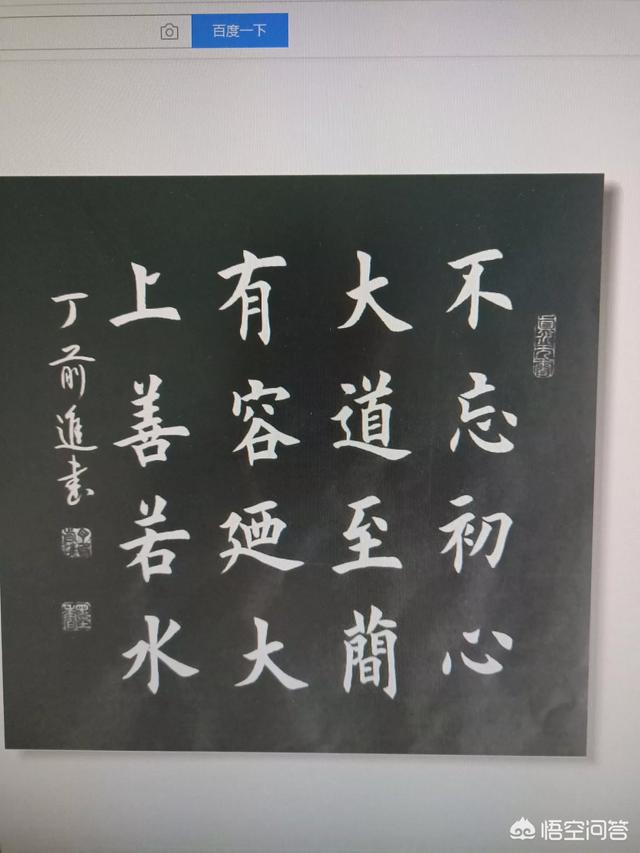 百度一下
不忘初心
大道至簡
有容廼大
上善若水
丁前進書
悟空问答